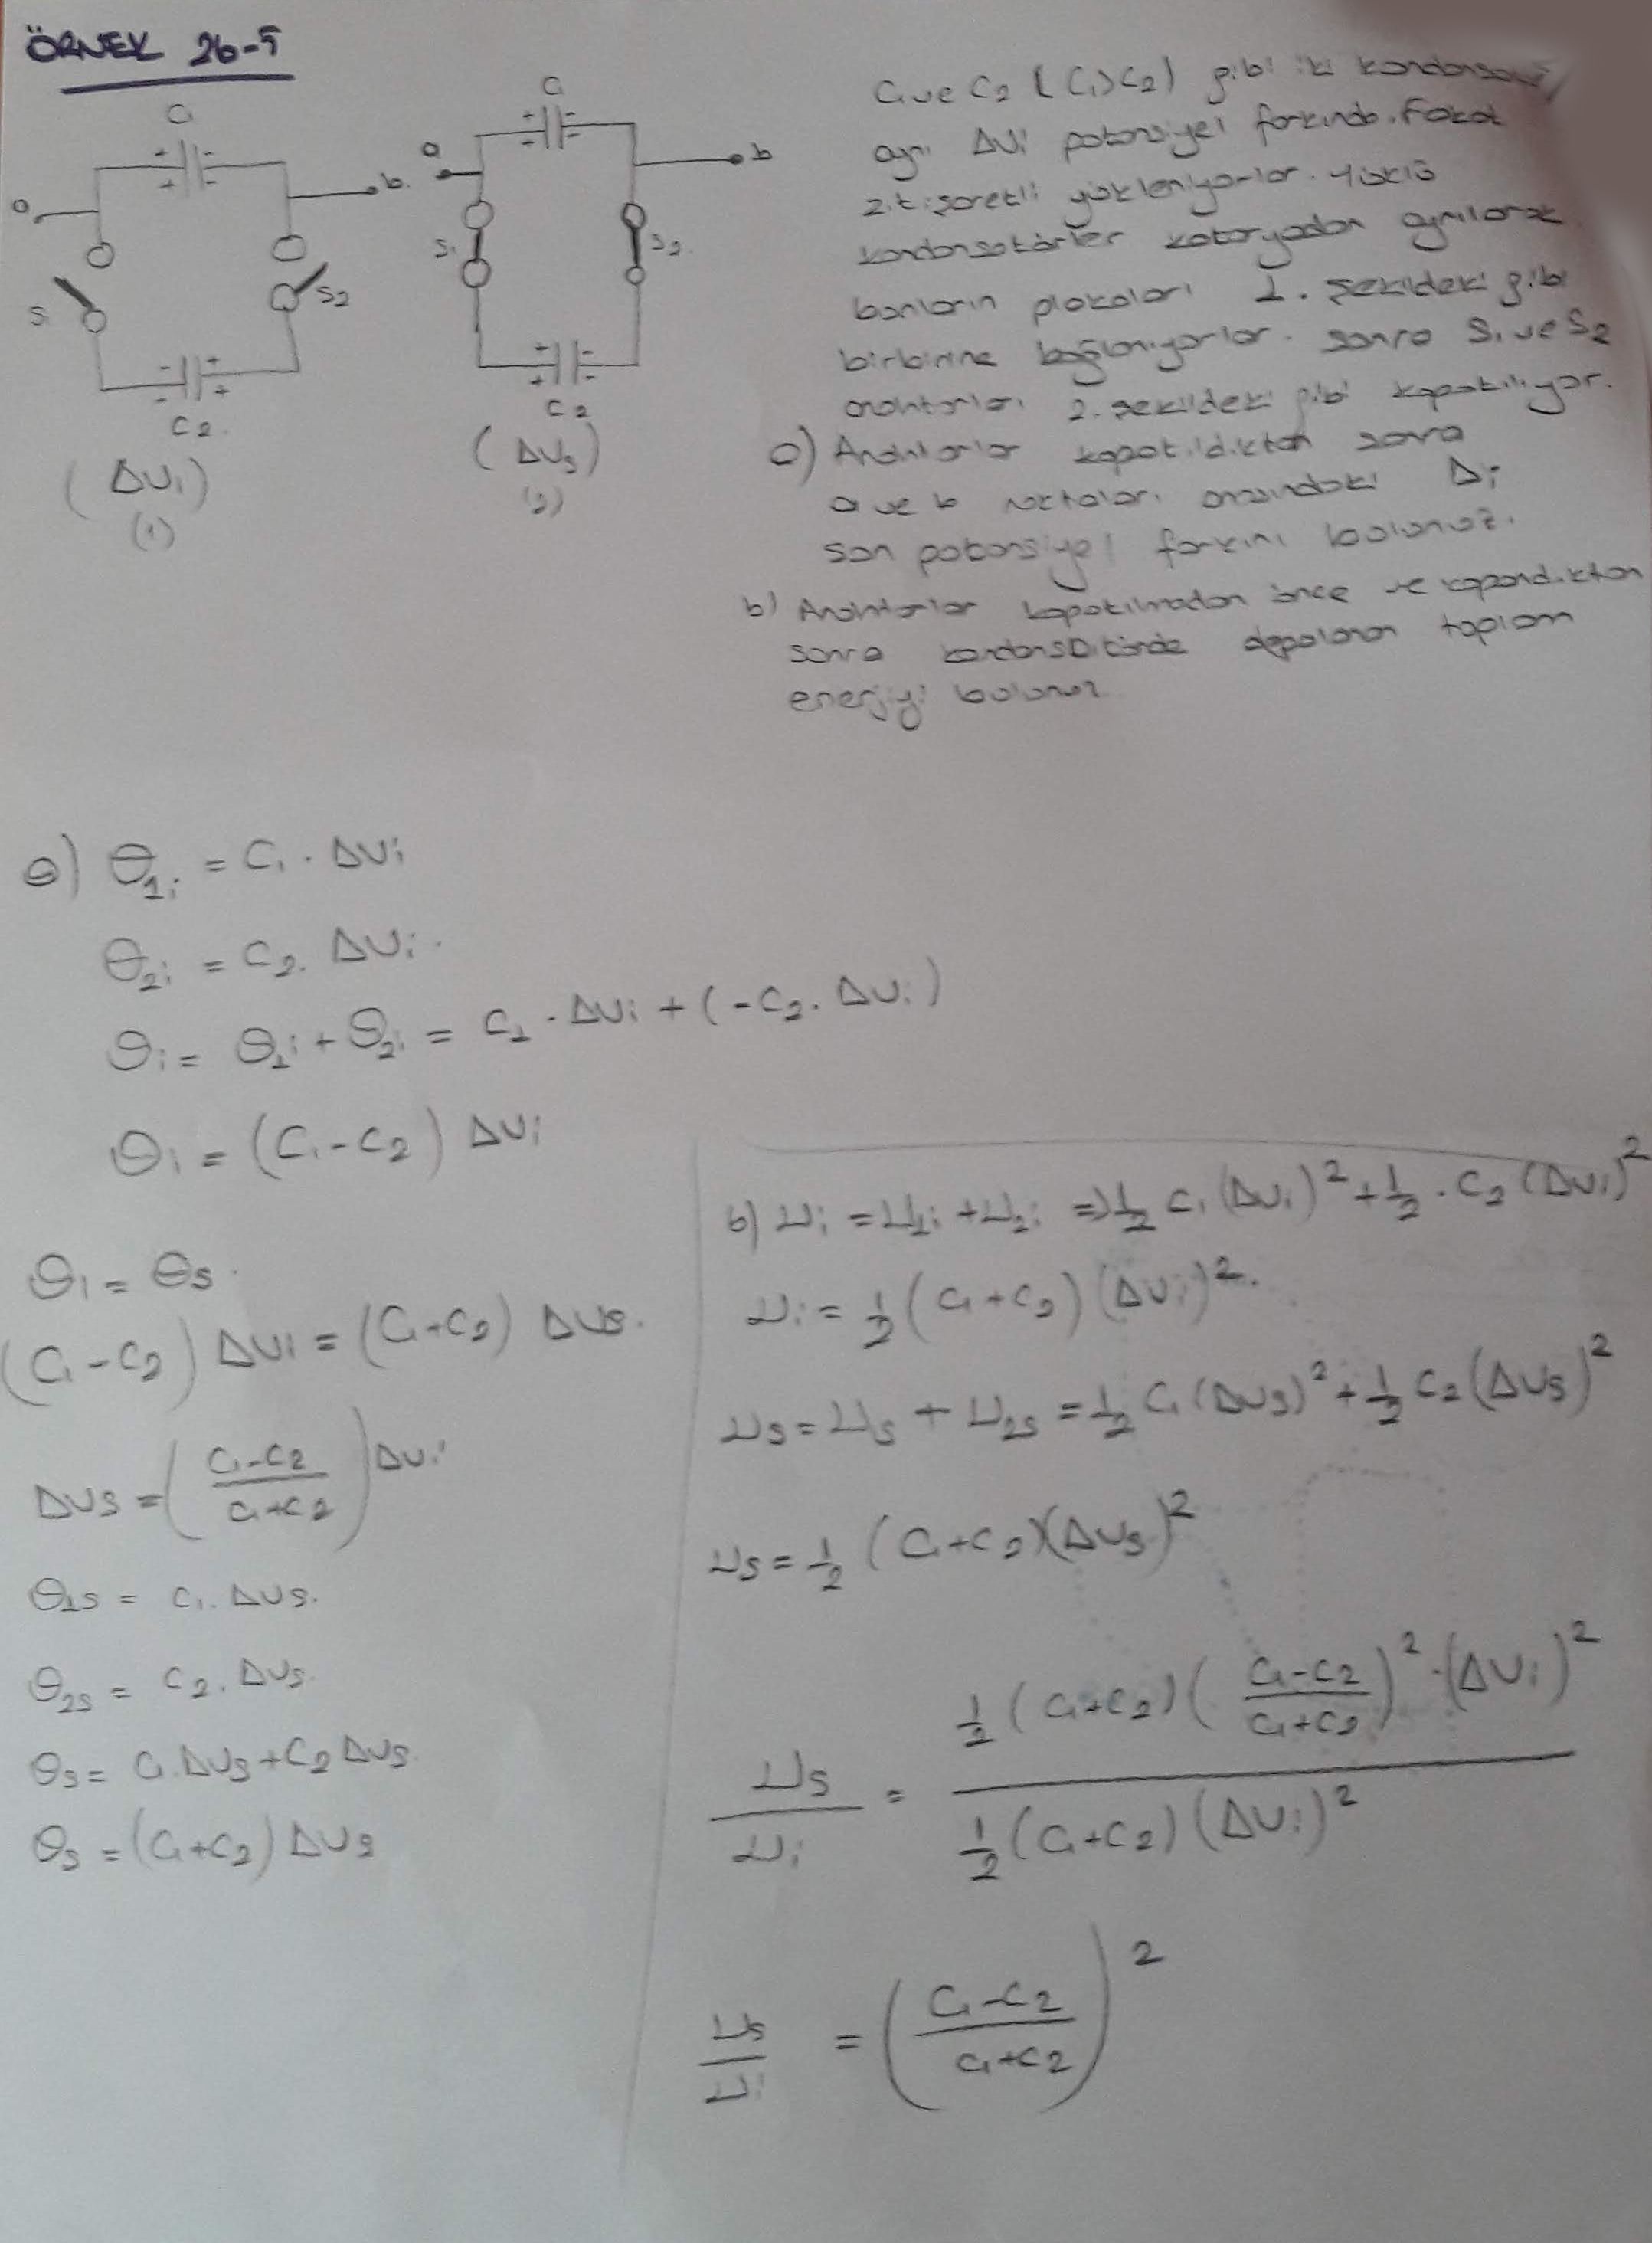 ÖRNEK 26-5
C₁
a
b
S₁
S₂
C₂
(ΔVi)
(1)
C₁
a
b
S₁
S₂
C₂
(ΔVs)
(2)
C₁ ve C₂ (C₁>C₂) gibi iki kondansatör
aynı ΔVi potansiyel farkında. Fakat
zıt işaretli yükleniyorlar. Yüklü
kondansatörler bataryadan ayrılarak
bunların plakaları 1. şekildeki gibi
birbirine bağlanıyorlar. Sonra S₁ ve S₂
anahtarları 2. şekildeki gibi kapatılıyor.
a) Anahtarlar kapatıldıktan sonra
a ve b noktaları arasındaki Δi
son potansiyel farkını bulunuz.
b) Anahtarlar kapatılmadan önce ve kapandıktan
sonra kondansatörde depolanan toplam
enerjiyi bulunuz
a) Q₁i = C₁ . ΔVi
Q₂i = C₂ . ΔVi.
Qi = Q₁i + Q₂i = C₁ . ΔVi + (-C₂ . ΔVi)
Qi = (C₁-C₂) ΔVi
Qi = Qs.
(C₁-C₂) ΔVi = (C₁+C₂) ΔVs.
ΔVs = ( (C₁-C₂)/(C₁+C₂) ) ΔVi
Q₁s = C₁ . ΔVs.
Q₂s = C₂ . ΔVs.
Qs = C₁ . ΔVs + C₂ ΔVs.
Qs = (C₁+C₂) ΔVs
b) Ui = U₁i + U₂i => 1/2 C₁ (ΔVi)² + 1/2 . C₂ (ΔVi)²
Ui = 1/2 (C₁+C₂) (ΔVi)².
Us = Us + U₂s = 1/2 C₁ (ΔVs)² + 1/2 C₂ (ΔVs)²
Us = 1/2 (C₁+C₂)(ΔVs)²
Us/Ui = 1/2 (C₁+C₂) ( (C₁-C₂)/(C₁+C₂) )² . (ΔVi)² / 1/2 (C₁+C₂) (ΔVi)²
Us/Ui = ( (C₁-C₂)/(C₁+C₂) )²